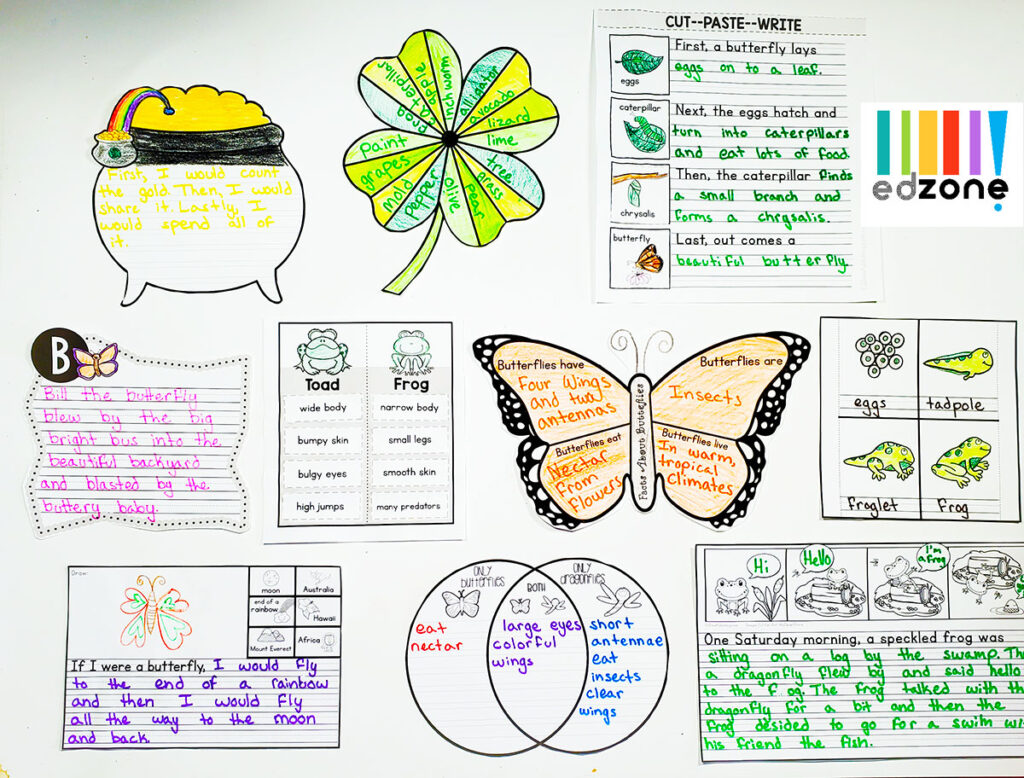 First, I would count
the gold. Then, I would
share it. Lastly, I
would spend all of
it.
frog
caterpillar
apple
inchworm
alligator
avocado
lizard
lime
tree
grass
pear
olive
pepper
mold
grapes
paint
CUT--PASTE--WRITE
eggs
First, a butterfly lays
eggs on to a leaf.
caterpillar
Next, the eggs hatch and
turn into caterpillars
and eat lots of food.
chrysalis
Then, the caterpillar finds
a small branch and
forms a chrysalis.
butterfly
Last, out comes a
beautiful butterfly.
edzone
B
Bill the butterfly
blew by the big
bright bus into the
beautiful backyard
and blasted by the
buttery baby.
Toad Frog
wide body narrow body
bumpy skin small legs
bulgy eyes smooth skin
high jumps many predators
Butterflies have
Four Wings
and two
antennas
Butterflies are
Insects
Butterflies eat
Nectar
From
Flowers
Butterflies live
In warm,
tropical
Climates
Facts About Butterflies
eggs tadpole
froglet frog
Draw:
moon Australia
end of a rainbow Hawaii
Mount Everest Africa
If I were a butterfly, I would fly
to the end of a rainbow
and then I would fly
all the way to the moon
and back.
ONLY
butterflies
BOTH
ONLY
dragonflies
eat
nectar
large eyes
colorful
wings
short
antennae
eat
insects
clear
wings
Hi
Hello
I'm
a frog
One Saturday morning, a speckled frog was
sitting on a log by the swamp. Th
a dragonfly flew by and said hello
to the f og. The frog talked with th
dragonfly for a bit and then the
frog desided to go for a swim wi
his friend the fish.